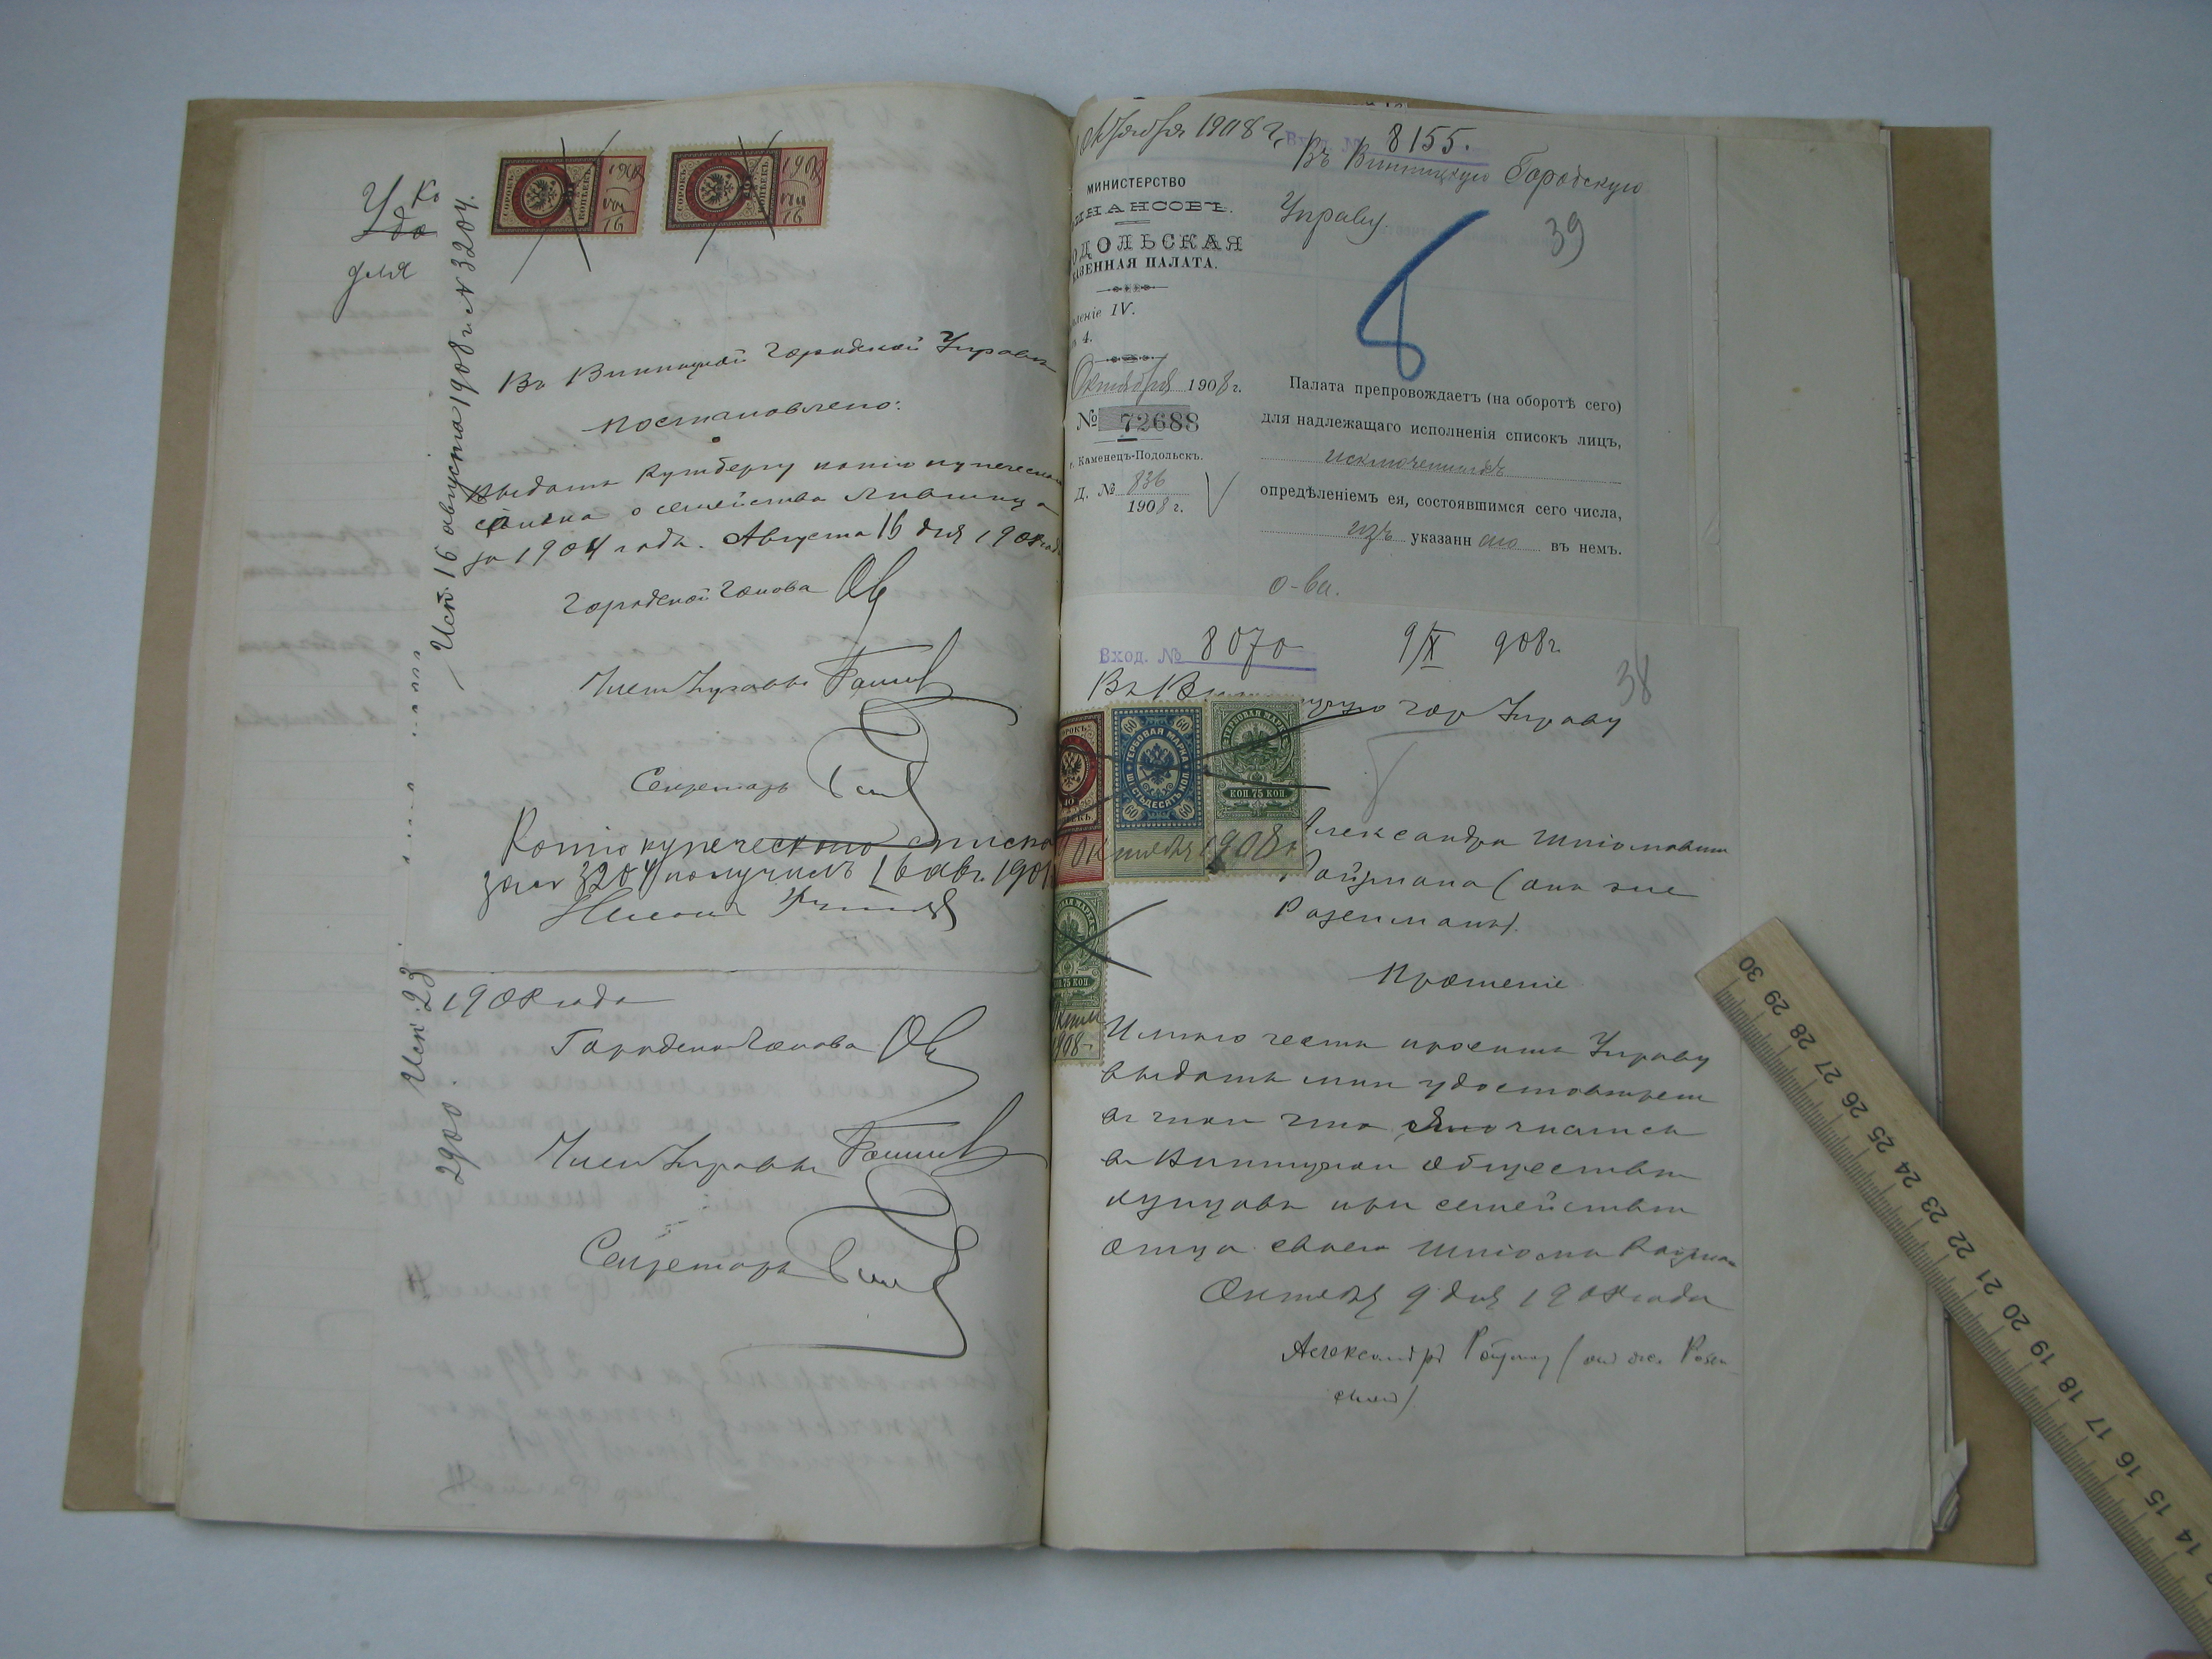 У ко
до
для
Исп. 16 августа 1908 г. N 3204.
СОРОКЪ 40 КОПѢЕКЪ
1908 VIII 16
СОРОКЪ 40 КОПѢЕКЪ
1908 VIII 16
Въ Винницкой Городской Управѣ
постановлено:
Выдать копію купеческаго
списка о семействѣ
за 1904 годъ. Августа 16 дня 1908 года
Городской Голова
Членъ Управы
Секретарь
Копію купеческого списка
за № 3204 получилъ 16 авг. 1908
Исп. 23
2900.
1908 года
Городской Голова
Членъ Управы
Секретарь
Октября 1908 г.
Вход. № 8155.
Въ Винницкую Городскую
Управу.
39
МИНИСТЕРСТВО
ИНАНСОВЪ.
ОДОЛЬСКАЯ
АЗЕННАЯ ПАЛАТА.
еленіе IV.
4.
Октября 1908 г.
№ 72688
г. Каменецъ-Подольскъ.
Д. № 836
1908 г.
8
Палата препровождаетъ (на оборотѣ сего)
для надлежащаго исполненія списокъ лицъ,
исключенныхъ
опредѣленіемъ ея, состоявшимся сего числа,
изъ указанн аго въ немъ.
о-ва.
Вход. № 8070 9/X 908 г.
38
Въ Винницкую гор Управу
ГЕРБОВАЯ МАРКА ШЕСТЬДЕСЯТЪ КОП. 60
ГЕРБОВАЯ МАРКА КОП 75 КОП
октября 1908 г.
Александра Шліомовича
Ройзмана (онъ же
Розенманъ).
Прошеніе
КОП 75 КОП
908 г.
Имѣю честь просить Управу
выдать мнѣ удостовѣреніе
въ томъ что числился
въ Винницкомъ обществѣ
купцовъ при семействѣ
отца своего Шліомы Ройзман
Октября 9 дня 1908 года
Александръ Ройзман (он же Розен
ман)
30 29 28 27 26 25 24 23 22 21 20 19 18 17 16 15 14